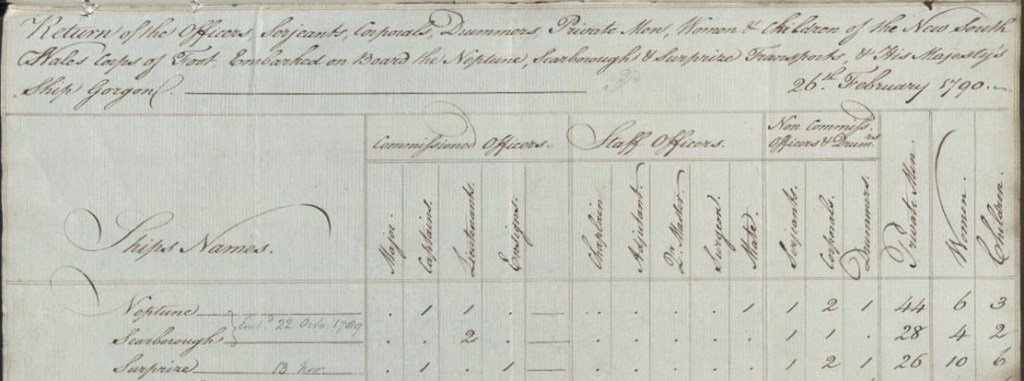 Return of the Officers, Serjeants, Corporals, Drummers, Private Men, Women & Children of the New South
Wales Corps of Foot, Embarked on Board the Neptune, Scarborough & Surprize Transports, & His Majesty's
Ship Gorgon. 26th. February 1790.
Ships Names. Commissioned Officers. Staff Officers. Non Commiss.
Officers & Drumrs.
Major. Captains. Lieutenants. Ensigns. Chaplain. Adjutant. Qr. Master. Surgeon. Mate. Serjeants. Corporals. Drummers. Private Men. Women. Children.
Neptune . 1 1 . . . . . 1 1 2 1 44 6 3
Embd. 22 Octo. 1789
Scarborough . . 2 . . . . . . 1 1 . 28 4 2
Surprize 13 Nov . 1 . 1 . . . . . 1 2 1 26 10 6